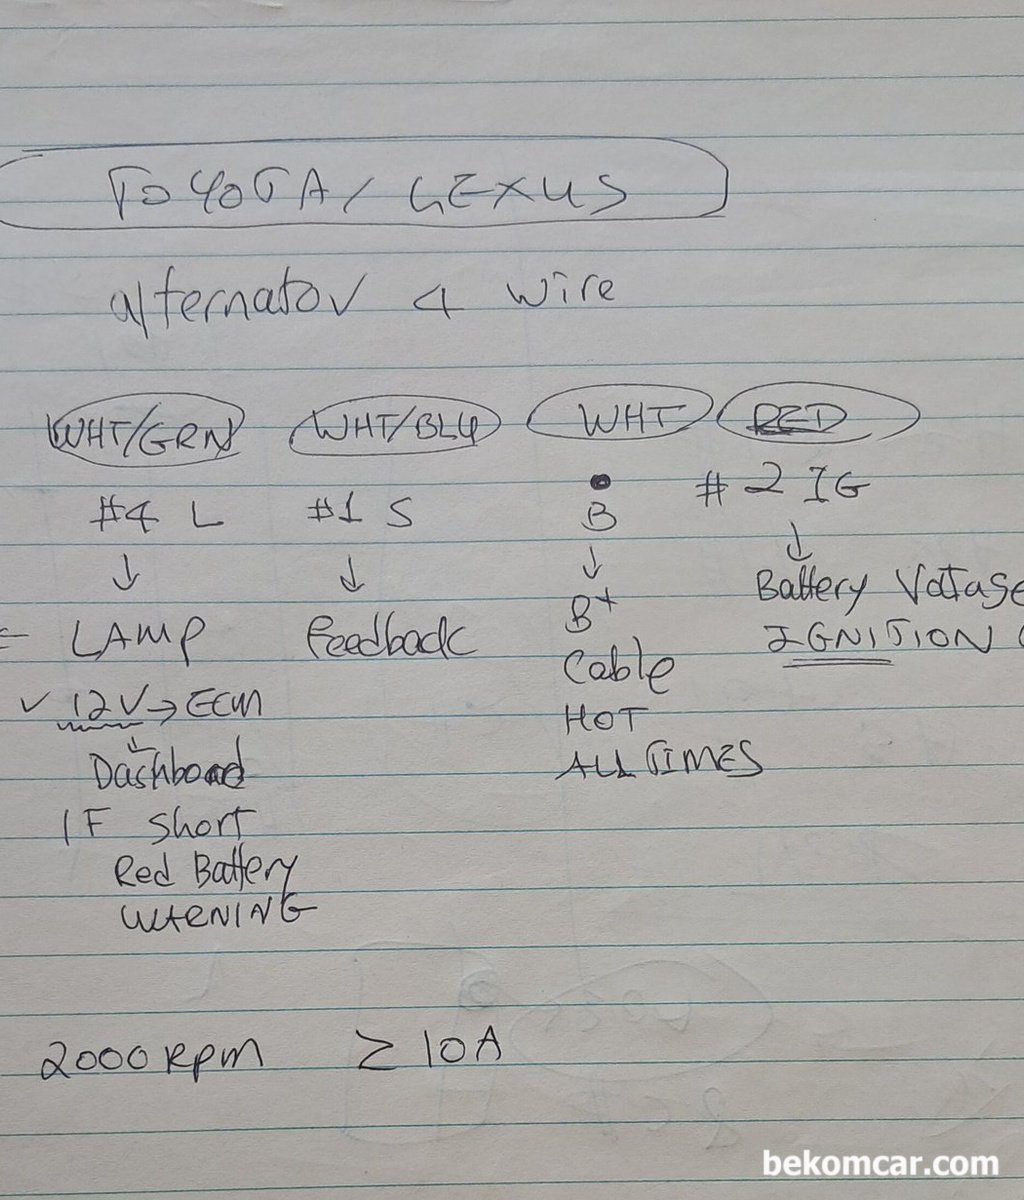 TOYOTA / LEXUS
alternator 4 wire
WHT/GRN WHT/BLU WHT RED
#4 L #1 S B #2 IG
↓ ↓ ↓ ↓
LAMP Feedback B+ Battery Voltage
✓ 12V → ECM Cable IGNITION
Dashboard HOT
IF short ALL TIMES
Red Battery
WARNING
2000 RPM ≥ 10A
bekomcar.com